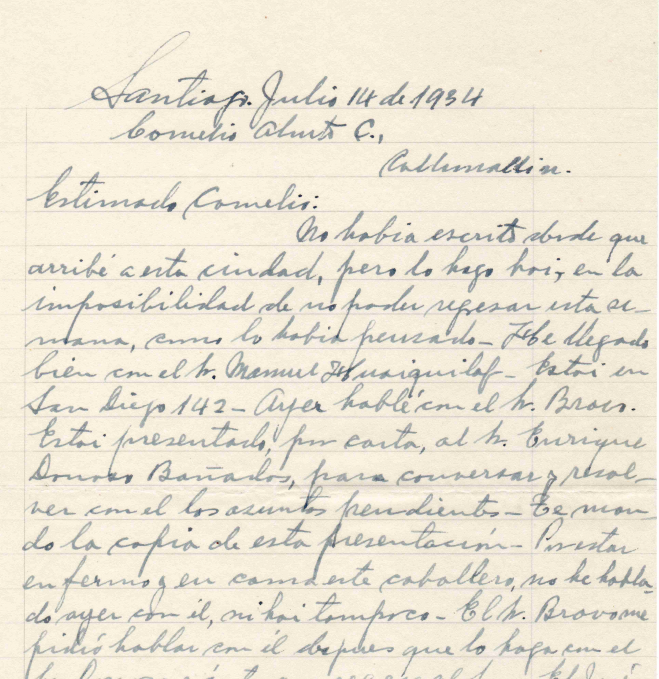 Santiago. Julio 14 de 1934
Cornelio Aburto C.,
Collimallin.
Estimado Cornelio:
No habia escrito desde que
arribé a esta ciudad, pero lo hago hoi, en la
imposibilidad de no poder regresar esta se-
mana, como lo habia pensado - He llegado
bien con el h. Manuel Huaiquilaf - Estoi en
San Diego 142 - Ayer hablé con el h. Bravo.
Estoi presentado, por carta, al h. Enrique
Donoso Bañados, para conversar y resol-
ver con el los asuntos pendientes - Te man-
do la copia de esta presentación - Por estar
enfermo y en cama este caballero, no he habla-
do ayer con él, ni hoi tampoco - El h. Bravo me
pidió hablar con él despues que lo haga con el